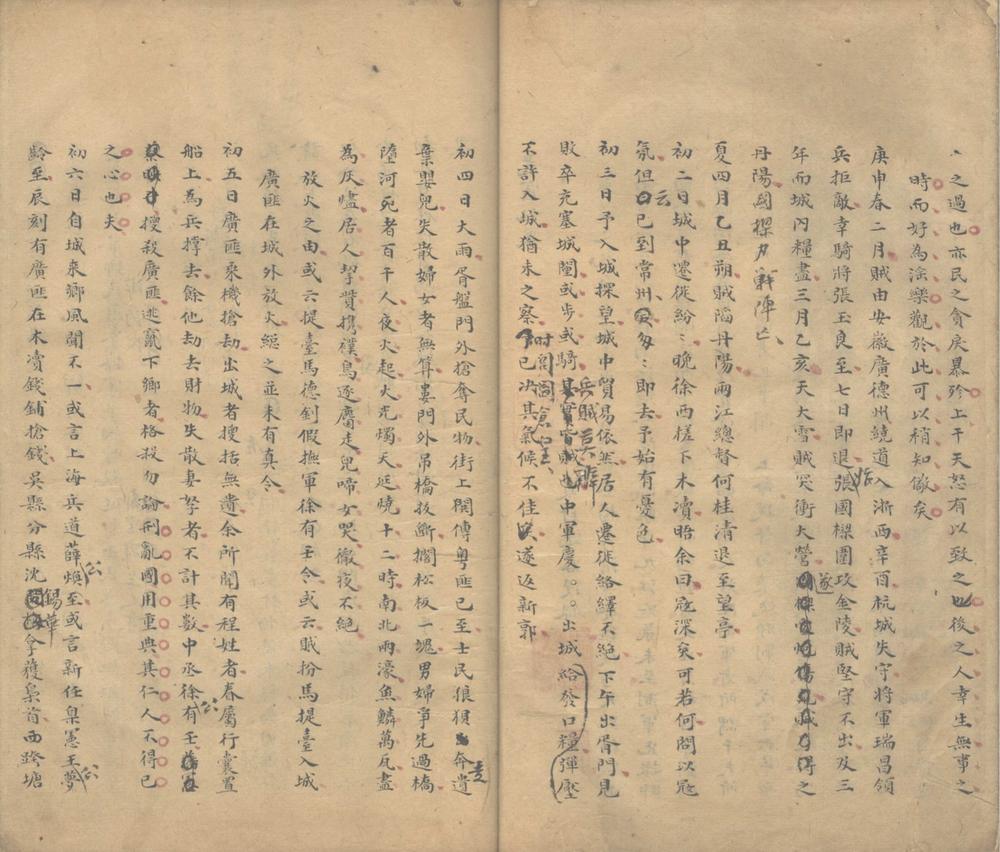 之過也亦民之貪戾暴殄上干天怒有以致之也後之人幸生無事之
時而好為淫樂觀於此可以稍知儆矣
庚申春二月賊由安徽廣德州繞道入浙西辛酉杭城失守將軍瑞昌領
兵拒敵幸騎將張玉良至七日即退張國樑圍攻金陵賊堅守不出及三
年而城內糧盡三月乙亥天大雪賊突衝大營遂之
丹陽國樑力戰陣亡
夏四月乙丑朔賊陷丹陽兩江總督何桂清退至望亭
初二日城中遷徙紛〻晚徐西槎下木瀆晤余曰寇深矣可若何問以寇
氛但云已到常州匆〻即去予始有憂色
初三日予入城探望城中貿易依然居人遷徙絡繹不絕下午出胥門見
敗卒充塞城闉或步或騎兵賊莫辨中軍慶出城給發口糧彈壓
不許入城猶未之察時閶門已決其氣候不佳遂返新郭
初四日大雨胥盤門外搶奪民物街上鬨傳粵匪已至士民狼狽奔走遺
棄嬰兒失散婦女者無算婁門外吊橋拔斷擱松板一塊男婦爭先過橋
墮河死者百千人夜火起火光燭天延燒十二時南北兩濠魚鱗萬瓦盡
為灰燼居人挈貲攜襆鳥逐麕走兒啼女哭徹夜不絕
放火之由或云提臺馬德釗假撫軍徐有壬令或云賊扮馬提臺入城
廣匪在城外放火總之並未有真令
初五日廣匪乘機搶劫出城者搜括無遺余所聞有程姓者眷屬行囊置
船上為兵撐去餘他劫去財物失散妻孥者不計其數中丞徐公有壬
搜殺廣匪逃竄下鄉者格殺勿論刑亂國用重典其仁人不得已
之心也夫
初六日自城來鄉風聞不一或言上海兵道薛公煥至或言新任臬憲王公夢
齡至辰刻有廣匪在木瀆錢鋪搶錢吳縣分縣沈錫華拿獲梟首西跨塘